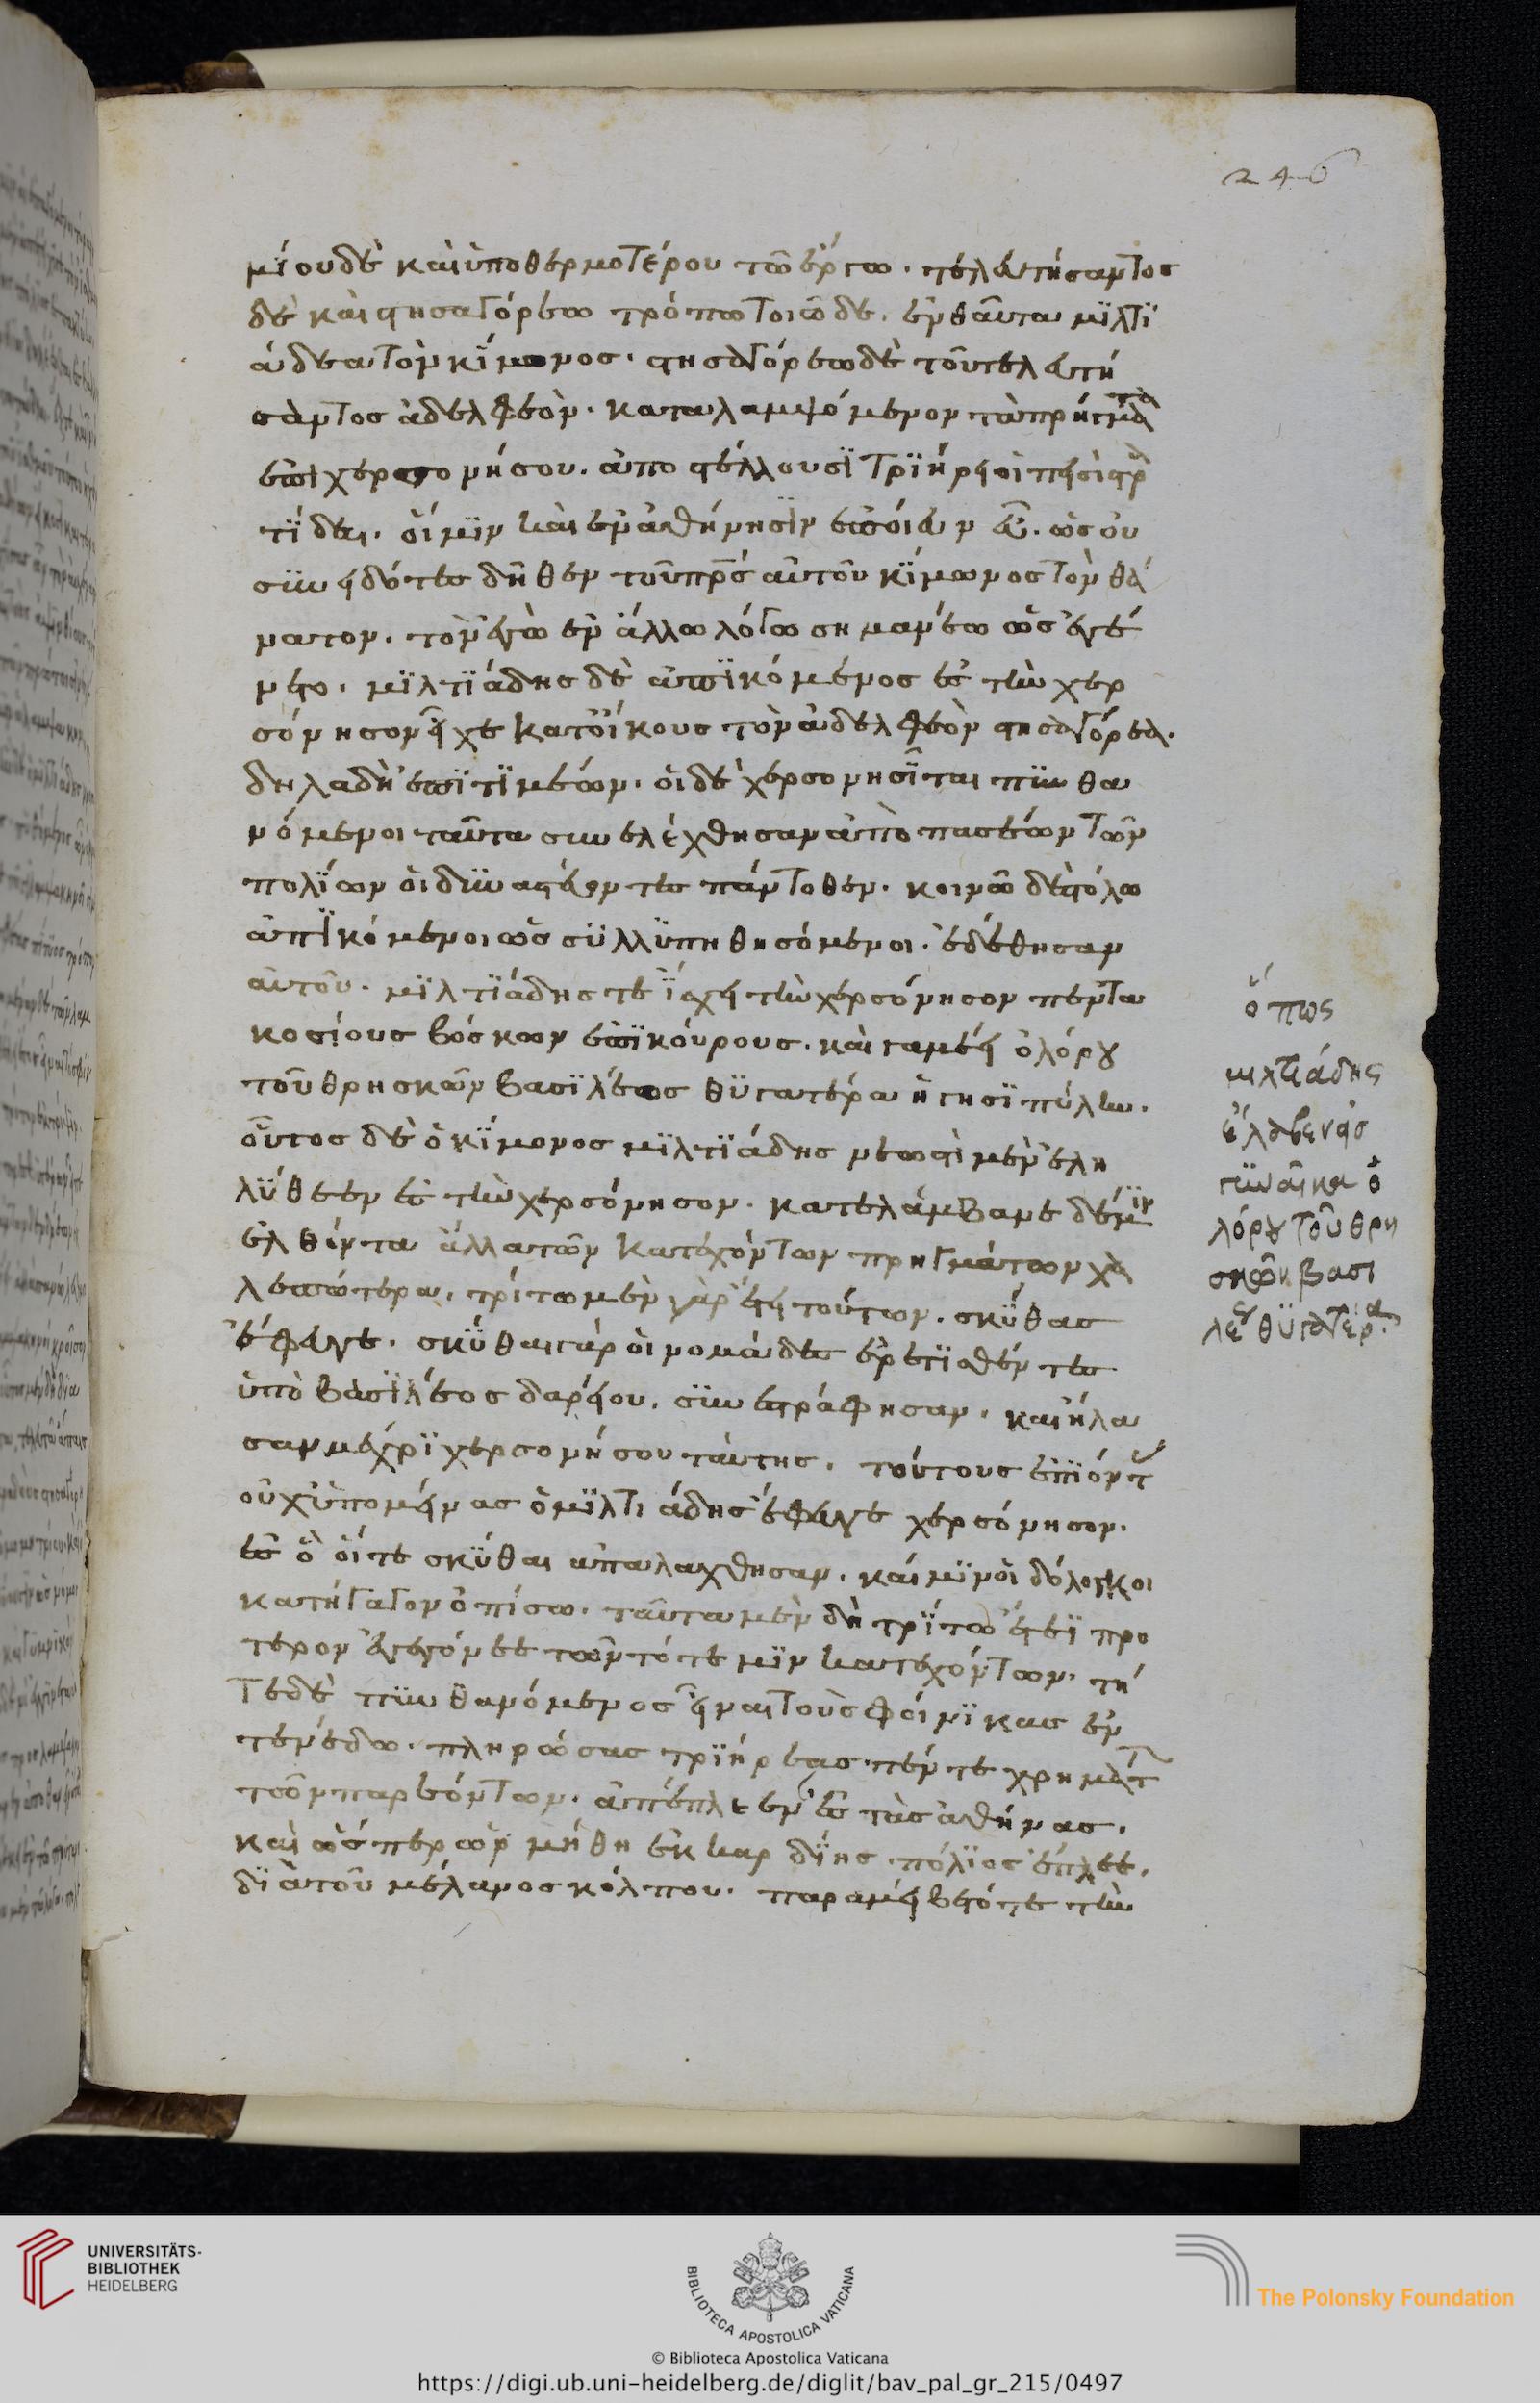 246
μίου δὲ καὶ ὑποθερμοτέρου τῶ ἔργω. τελευτήσαντος
δὲ καὶ στησαγόρεω τρόπω τοιῶδε. ἐνθαῦτα μϊλτϊ
άδεα τὸν κΐμωνος. στησαγόρεω δὲ τοῦ τελευτή
σαντος ἀδελφεὸν. καταλαμψόμενον τὰ πρήγματα
ἐπὶ χερσονήσου. ἀποστέλλουσϊ τρϊήρεϊ οἱ πεισιστρα
τίδαι. οἵ μϊν καὶ ἐν ἀθήνησϊν ἐποίευν εὖ. ὡς οὐ
συνειδότες δῆθεν τοῦ πρς αὐτοῦ κΐμωνος τὸν θά
νατον. τὸν ἐγὼ ἐν ἄλλω λόγω σημανέω ὡς ἐγέ
νετο. μϊλτϊάδης δὲ ἀπϊκόμενος ἐς τὴν χερ
σόνησον εἶχε κατ' οἴκους τὸν ἀδελφεὸν στησαγόρεα.
δηλαδὴ ἐπϊτϊμέων. οἱ δὲ χερσονησῖται πϋνθα
νόμενοι ταῦτα συνελέχθησαν ἀπὸ πασέων τῶν
πολΐων οἱ δϋναστεύοντες πάντοθεν. κοινῶ δὲ στόλω
ἀπϊκόμενοι ὡς σϋλλϋπηθησόμενοι. ἐδέθησαν
αὐτοῦ. μϊλτϊάδης τε ἴσχει τὴν χερσόνησον πεντα
κοσίους βόσκων ἐπϊκούρους. καὶ γαμέει ὀλόρου
τοῦ θρησκῶν βασϊλέωος θϋγατέρα ἡγησϊπύλην.
οὗτος δὲ ὁ κΐμωνος μϊλτϊάδης νεωστὶ μὲν ἐλη
λΰθεεν ἐς τὴν χερσόνησον. κατελάμβανε δέ μϊν
ἐλθόντα ἄλλα τῶν κατεχόντων πρηγμάτων χα
λεπώτερα. τρίτω μὲν γὰρ ἔτει τούτων. σκΰθας
ἔφευγε. σκΰθαι γὰρ οἱ νομάδες ἐρεϊσθέντες
ὑπὸ βασϊλέος δαρείου. σϋνεστράφησαν. καὶ ἤλα
σαν μέχρϊ χερσονήσου ταύτης. τούτους ἐπϊόντας
οὐχ ὑπομείνας ὁ μϊλτιάδης ἔφευγε χερσόνησον.
ἐς ὃ οἵ τε σκΰθαι ἀπαλαχθησαν. καί μϊν οἱ δόλογκοι
κατήγαγον ὀπίσω. ταῦτα μὲν δὴ τρΐτω ἔτεϊ προ
τερον ἐγεγόνεε τῶν τότε μϊν κατεχόντων. τό
τε δὲ πϋνθανόμενος εἶναι τοὺς φοίνϊκας ἐν
τενέδω. πληρώσας τρϊήρεας πέντε χρημάτ
τῶν παρεόντων. ἀπέπλεεν ἐς τὰς ἀθήνας.
καὶ ὥσπερ ὡρμήθη ἐκ καρδΐης πόλϊος ἔπλεε.
δϊὰ τοῦ μέλανος κόλπου. παραμείβετό τε τὴν
ὅπως
μιλτιάδης
ἔλαβεν εἰς
γϋναῖκα ὀ
λόρου τοῦ θρη
σκῶν βασι
λέως θϋγατέρα.
UNIVERSITÄTS-
BIBLIOTHEK
HEIDELBERG
BIBLIOTECA APOSTOLICA VATICANA
The Polonsky Foundation
© Biblioteca Apostolica Vaticana
https://digi.ub.uni-heidelberg.de/diglit/bav_pal_gr_215/0497